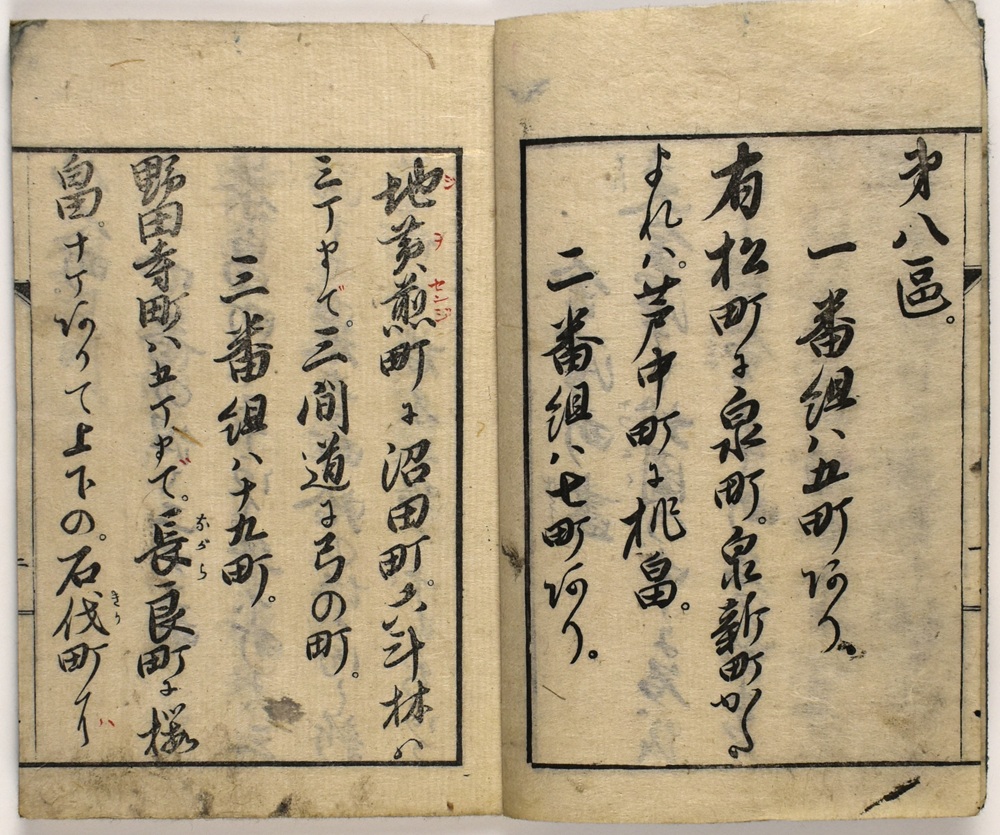 第八區。
一番組ハ五町阿り。
有松町に泉町。泉新町かた。
よれハ。芦中町に桃畠。
二番組ハ七町阿り。
地黄煎町に沼田町。六斗林ハ
ジヲセンジ
三丁まで。三間道に弓の町。
三番組ハ十九町。
野田寺町ハ五丁まで。長良町に桜
ながら
畠。十丁阿りて上下の。石伐町
きり
ハ